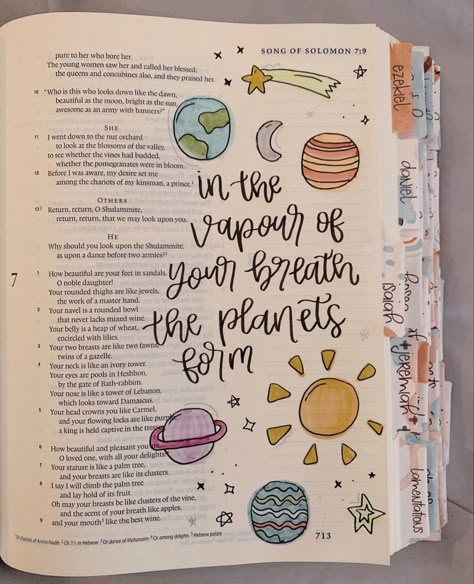 pure to her who bore her.
The young women saw her and called her blessed;
the queens and concubines also, and they praised her.
SONG OF SOLOMON 7:9
10 "Who is this who looks down like the dawn,
beautiful as the moon, bright as the sun,
awesome as an army with banners?"
SHE
11 I went down to the nut orchard
to look at the blossoms of the valley,
to see whether the vines had budded,
whether the pomegranates were in bloom.
12 Before I was aware, my desire set me
among the chariots of my kinsman, a prince.
OTHERS
13 Return, return, O Shulammite,
return, return, that we may look upon you.
HE
Why should you look upon the Shulammite,
as upon a dance before two armies?
7
1 How beautiful are your feet in sandals,
O noble daughter!
Your rounded thighs are like jewels,
the work of a master hand.
2 Your navel is a rounded bowl
that never lacks mixed wine.
Your belly is a heap of wheat,
encircled with lilies.
3 Your two breasts are like two fawns,
twins of a gazelle.
4 Your neck is like an ivory tower.
Your eyes are pools in Heshbon,
by the gate of Bath-rabbim.
Your nose is like a tower of Lebanon,
which looks toward Damascus.
5 Your head crowns you like Carmel,
and your flowing locks are like purple;
a king is held captive in the tresses.
6 How beautiful and pleasant you
O loved one, with all your delights!
7 Your stature is like a palm tree,
and your breasts are like its clusters.
8 I say I will climb the palm tree
and lay hold of its fruit.
Oh may your breasts be like clusters of the vine,
and the scent of your breath like apples,
9 and your mouth like the best wine.
in the
vapour of
your breath
the planets
form
713
ezekiel
daniel
isaiah
jeremiah
lamentations